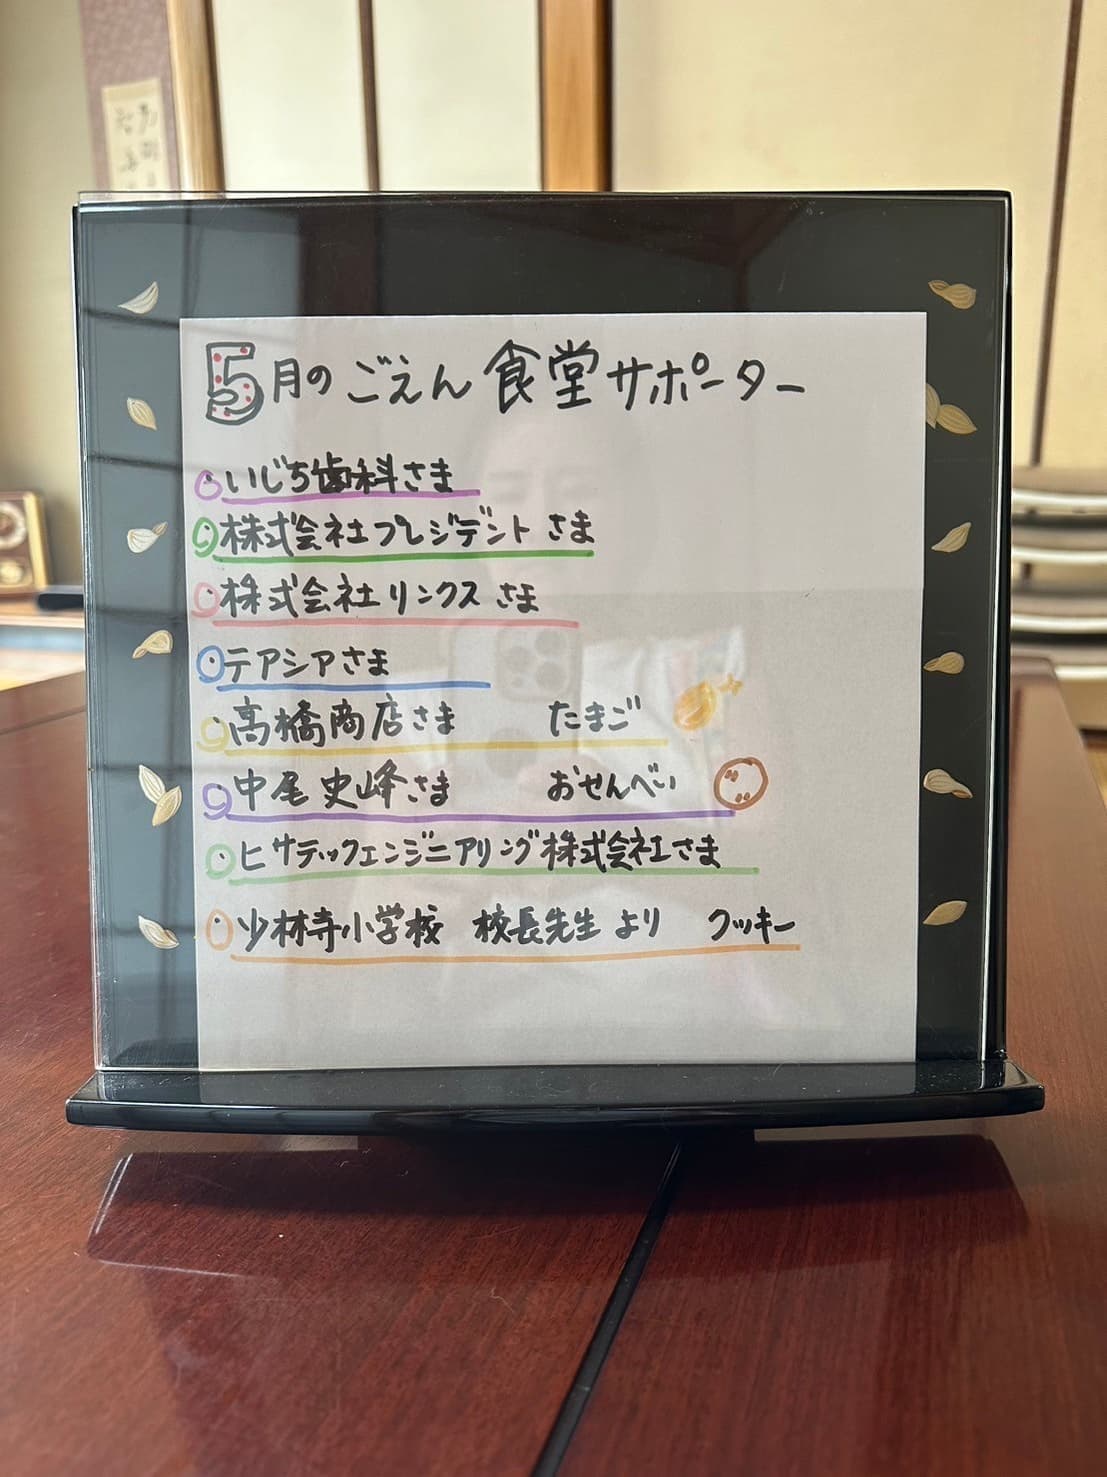 5月のごえん食堂サポーター
いじち歯科さま
株式会社プレジデントさま
株式会社リンクスさま
テアシアさま
高橋商店さま たまご
中尾史峰さま おせんべい
ヒサテックエンジニアリング株式会社さま
少林寺小学校 校長先生より クッキー